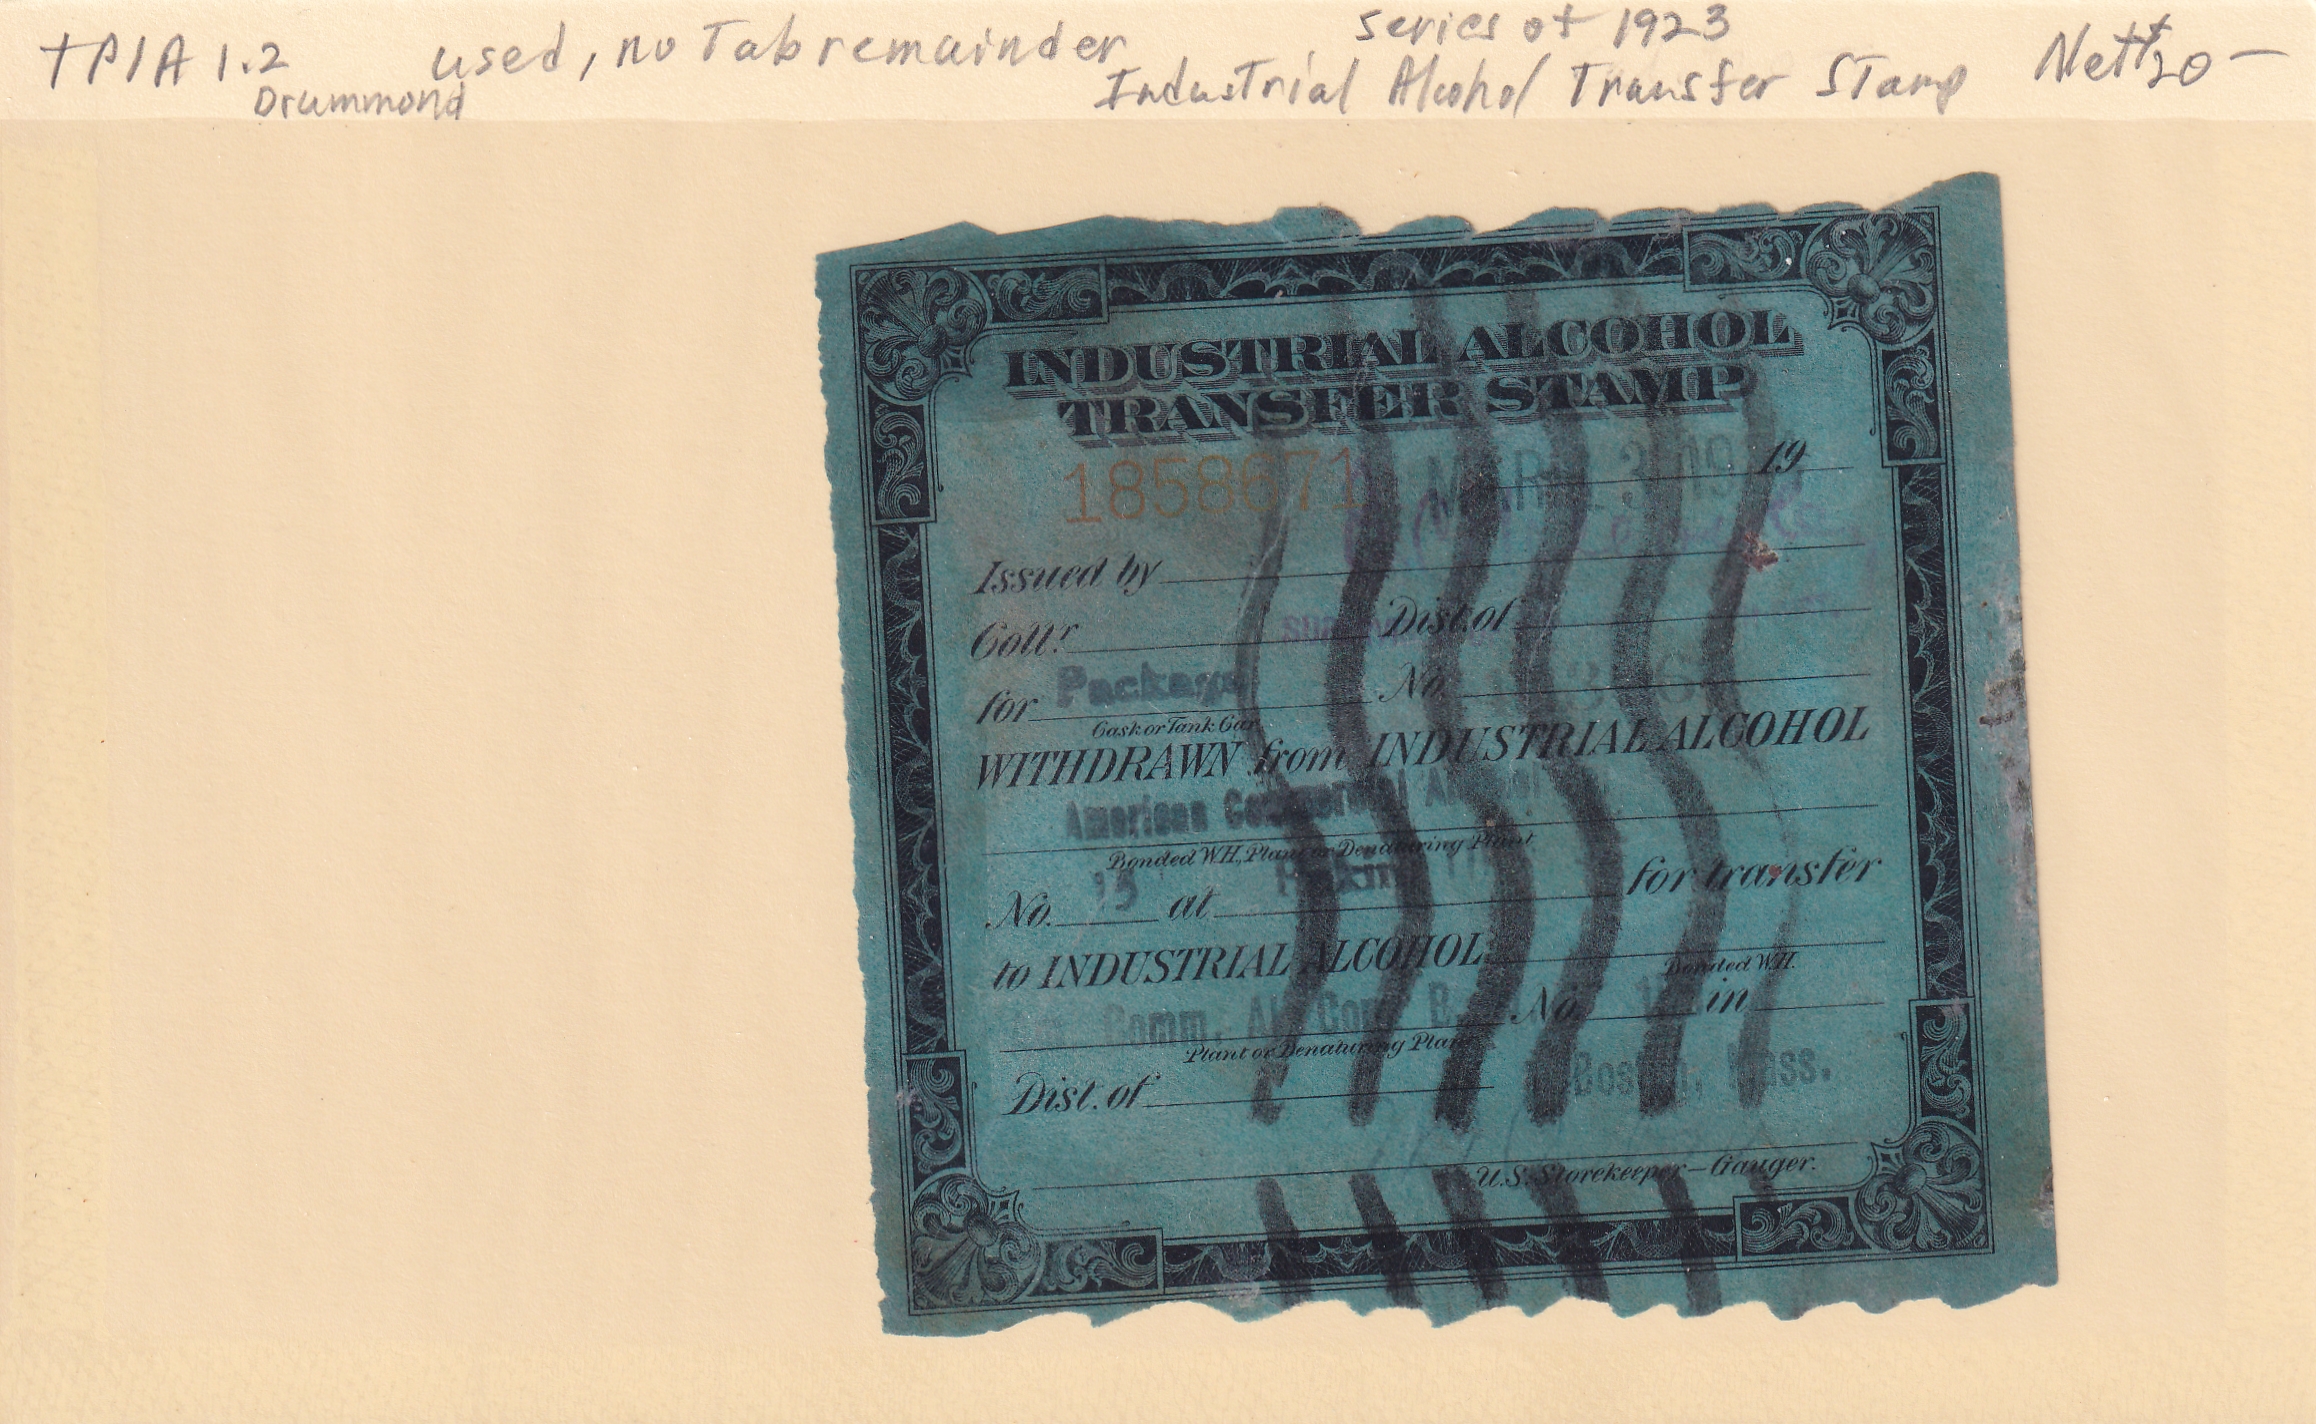 series of 1923
TPIA 1.2 used, no Tab remainder Industrial Alcohol Transfer Stamp Nett $20-
Drummond
INDUSTRIAL ALCOHOL
TRANSFER STAMP
1858671 MAR 3 19 19
Issued by
Coll.r Dist. of
for Package No.
Cask or Tank Car
WITHDRAWN from INDUSTRIAL ALCOHOL
American Commercial Alcohol
Bonded W.H., Plant or Denaturing Plant
No. 13 at Pekin for transfer
to INDUSTRIAL ALCOHOL
Bonded W.H.
Comm. Al. Corp. B. No. in
Plant or Denaturing Plant
Boston, Mass.
Dist. of
U.S. Storekeeper-Gauger.